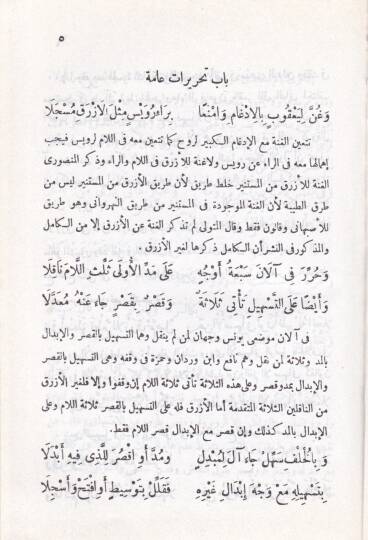 ٥
باب تحريرات عامة
وَغُنَّ لِيَعْقُوبٍ بِالِادْغَامِ وَامْنَعًا بِرَا ءِ رُوَيْسٍ مِثْلَ الَازْرَقِ مُسْجَلَا
تتعين الغنة مع الإدغام الكبير لروح كما تتعين معه فى اللام لرويس فيجب
إهمالها معه فى الراء عن رويس ولا غنة للأزرق فى اللام والراء وذكر المنصورى
الغنة للأزرق من المستنير خلط طريق لأن طريق الأزرق من المستنير ليس من
طرق الطيبة لأن الغنة الموجودة فى المستنير من طريق النهروانى وهو طريق
للأصبهانى وقانون فقط وقال المتولى لم تذكر الغنة عن الأزرق إلا من الكامل
والمذكور فى النشر أن الكامل ذكرها لغير الأزرق .
وَحُرِّرَ فِى آلَانَ سَبْعَةُ أَوْجُهٍ عَلَى مَدِّ الُأولَى ثَلَّثِ اللَّامَ نَاقِلَا
وَأَيْضًا عَلَى التَّسْهِيلِ تَأْتِى ثَلَاثَةٌ وَقَصْرٌ بِقَصْرٍ جَاءَ عَنْهُ مُعَدَّلَا
فى آلان موضعى يونس وجهان لمن لم ينقل وهما التسهيل بالقصر والإبدال
بالمد وثلاثة لمن نقل وهم نافع وابن وردان وحمزة فى وقفه وهى التسهيل بالقصر
والإبدال بمد وقصر وعلى هذه الثلاثة تأتى ثلاثة اللام إن وقفوا وإلا فلغير الأزرق
من الناقلين الثلاثة المتقدمة أما الأزرق فله على التسهيل بالقصر ثلاثة اللام وعلى
الإبدال بالمد كذلك وإن قصر مع الإبدال قصر اللام فقط.
وَبِالْخُلْفِ سَهِّلْ جَاءَ آلَ لِمُبْدِلٍ وَمُدَّ أَوِ اقْصُرْ لِلَّذِى فِيهِ أَبْدَلَا
بِتَسْهِيلِهِ مَعْ وَجْهِ إِبْدَالِ غَيْرِهِ فَقَلِّلْ بِتَوْسِيطٍ أَوِ افْتَحْ وَأَسْجِلَا